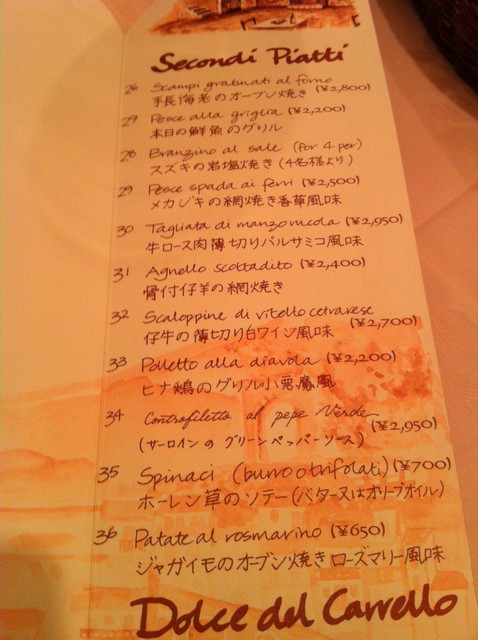 Secondi Piatti
26 Scampi gratinati al forno
手長海老のオーブン焼き (¥2,800)
29 Pesce alla griglia (¥2,200)
本日の鮮魚のグリル
28 Branzino al sale (for 4 per)
スズキの岩塩焼き (4名様より)
29 Pesce spada ai ferri (¥2,500)
メカジキの網焼き香草風味
30 Tagliata di manzo rucola (¥2,950)
牛ロース肉薄切りバルサミコ風味
31 Agnello scottadito (¥2,400)
骨付仔羊の網焼き
32 Scaloppine di vitello cetrarese
仔牛の薄切り白ワイン風味 (¥2,700)
33 Polletto alla diavola (¥2,200)
ヒナ鶏のグリル小悪魔風
34 Controfiletto al pepe Verde
(サーロインのグリーンペッパーソース) (¥2,950)
35 Spinaci (burro o trifolati) (¥700)
ホーレン草のソテー(バター又はオリーブオイル)
36 Patate al rosmarino (¥650)
ジャガイモのオーブン焼きローズマリー風味
Dolce del Carrello